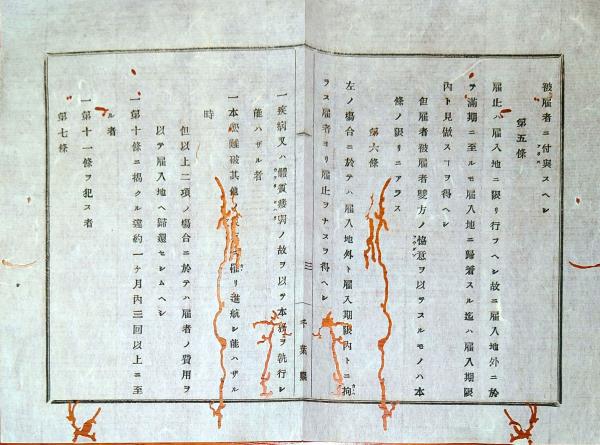 被雇者ニ付與スヘシ
第五條
雇止ハ雇入地ニ限リ行フヘシ故ニ雇入地外ニ於
ヲ滿期ニ至ルモ雇入地ニ歸着スル迄ハ雇入期限
内ト見做スヿヲ得ヘシ
但雇者被雇者雙方ノ協意ヲ以テスルモノハ本
條ノ限リニアラス
第六條
左ノ塲合ニ於テハ雇入地外ト雇入期限内トニ拘
ラス雇者ヨリ雇止ヲナスヲ得ヘシ
三
千葉縣
一疾病又ハ體質痿弱ノ故ヲ以テ本務ヲ執行シ
能ハザル者
一本船難破其他
罹リ進航シ能ハザル
時
但以上二項ノ塲合ニ於テハ雇者ノ費用ヲ
以テ雇入地ヘ歸還セシムヘシ
一第十條ニ揭クル違約一ケ月内三回以上ニ至
ル者
一第十一條ヲ犯ス者
第七條